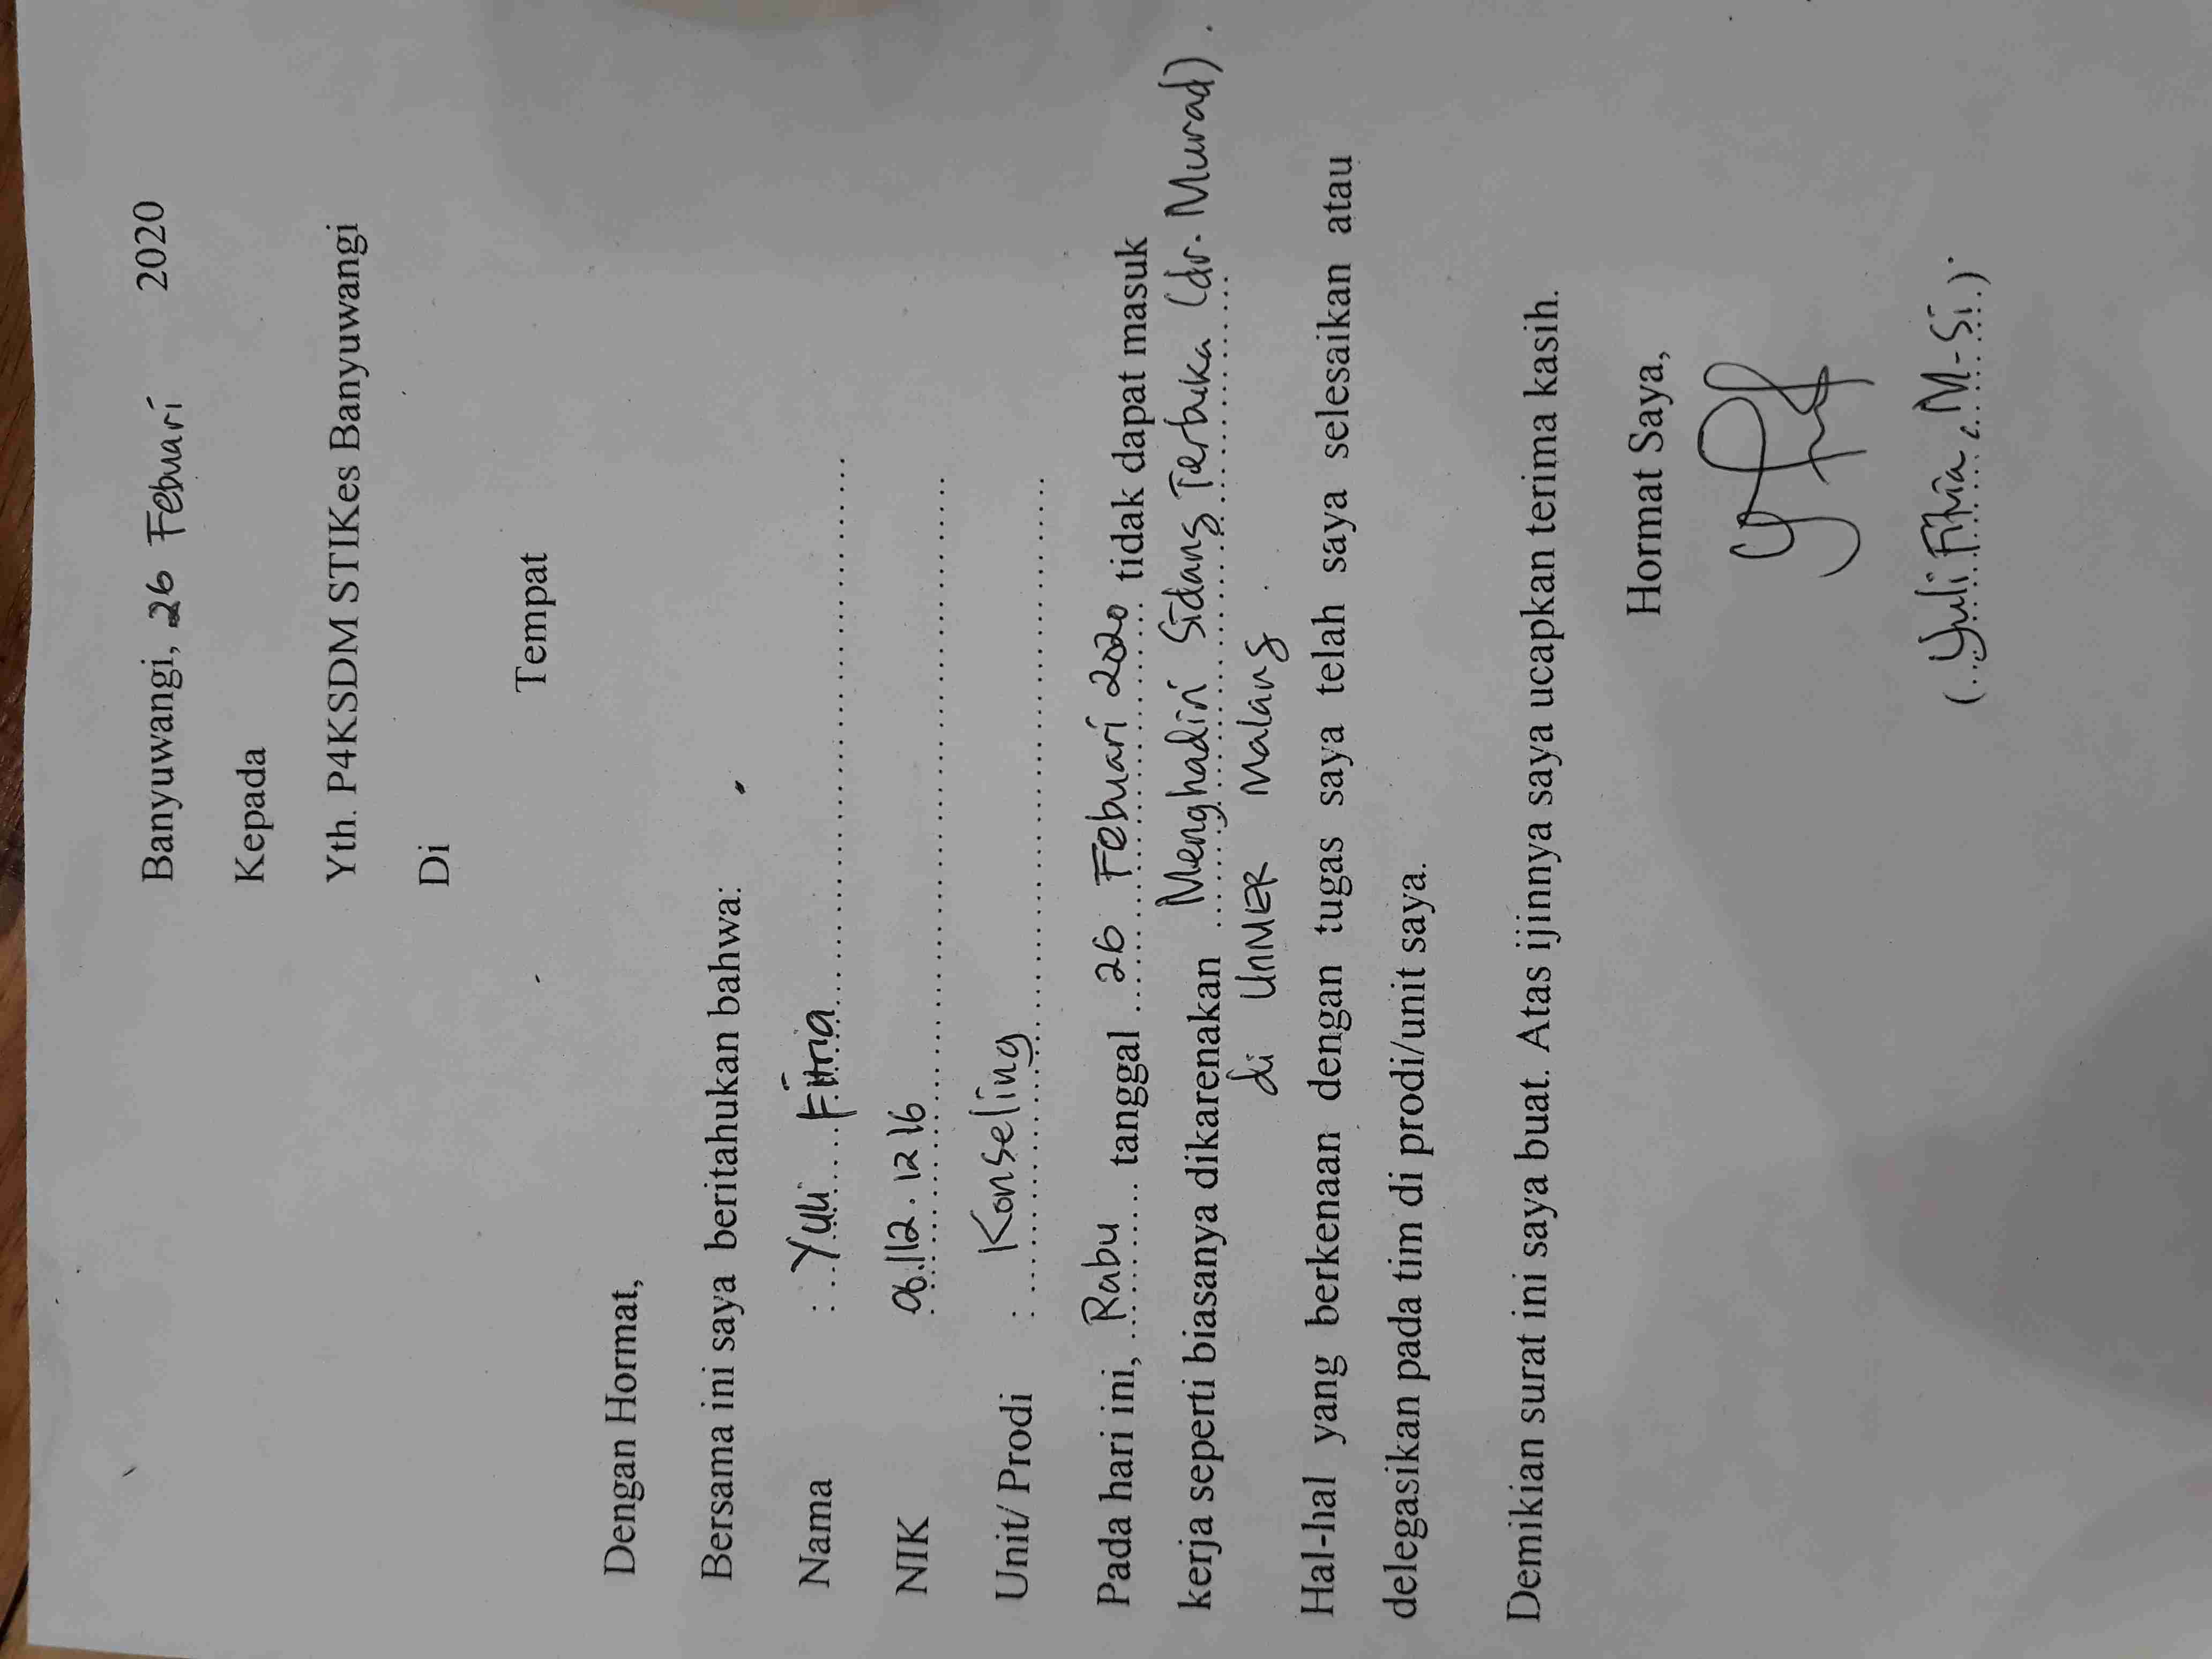 Banyuwangi, 26 Febuari 2020
Kepada
Yth. P4KSDM STIKes Banyuwangi
Di
Tempat
Dengan Hormat,
Bersama ini saya beritahukan bahwa:
Nama : Yuli Fitria
NIK : 06.112.1216
Unit/ Prodi : Konseling
Pada hari ini, Rabu tanggal 26 Febuari 2020 tidak dapat masuk
kerja seperti biasanya dikarenakan Menghadiri Sidang Terbuka (dr. Murad).
di UnMER Malang.
Hal-hal yang berkenaan dengan tugas saya telah saya selesaikan atau
delegasikan pada tim di prodi/unit saya.
Demikian surat ini saya buat. Atas ijinnya saya ucapkan terima kasih.
Hormat Saya,
(Yuli Fitria, M-Si)